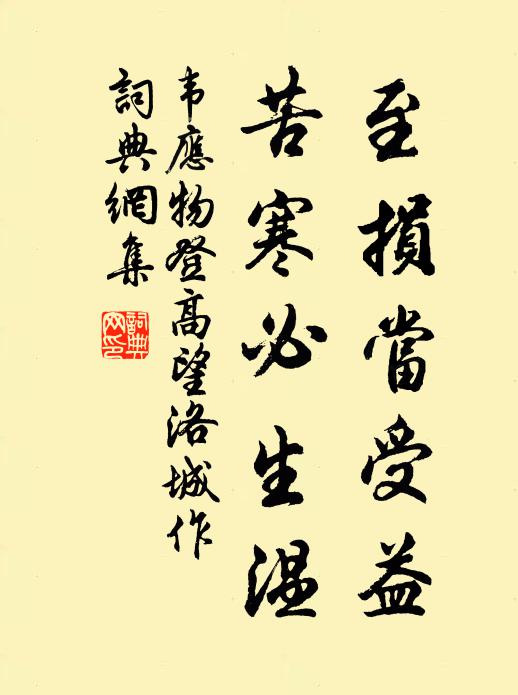 至損當受益
苦寒必生温
韦應物登高望洛城作
詞典網集
詞典网印